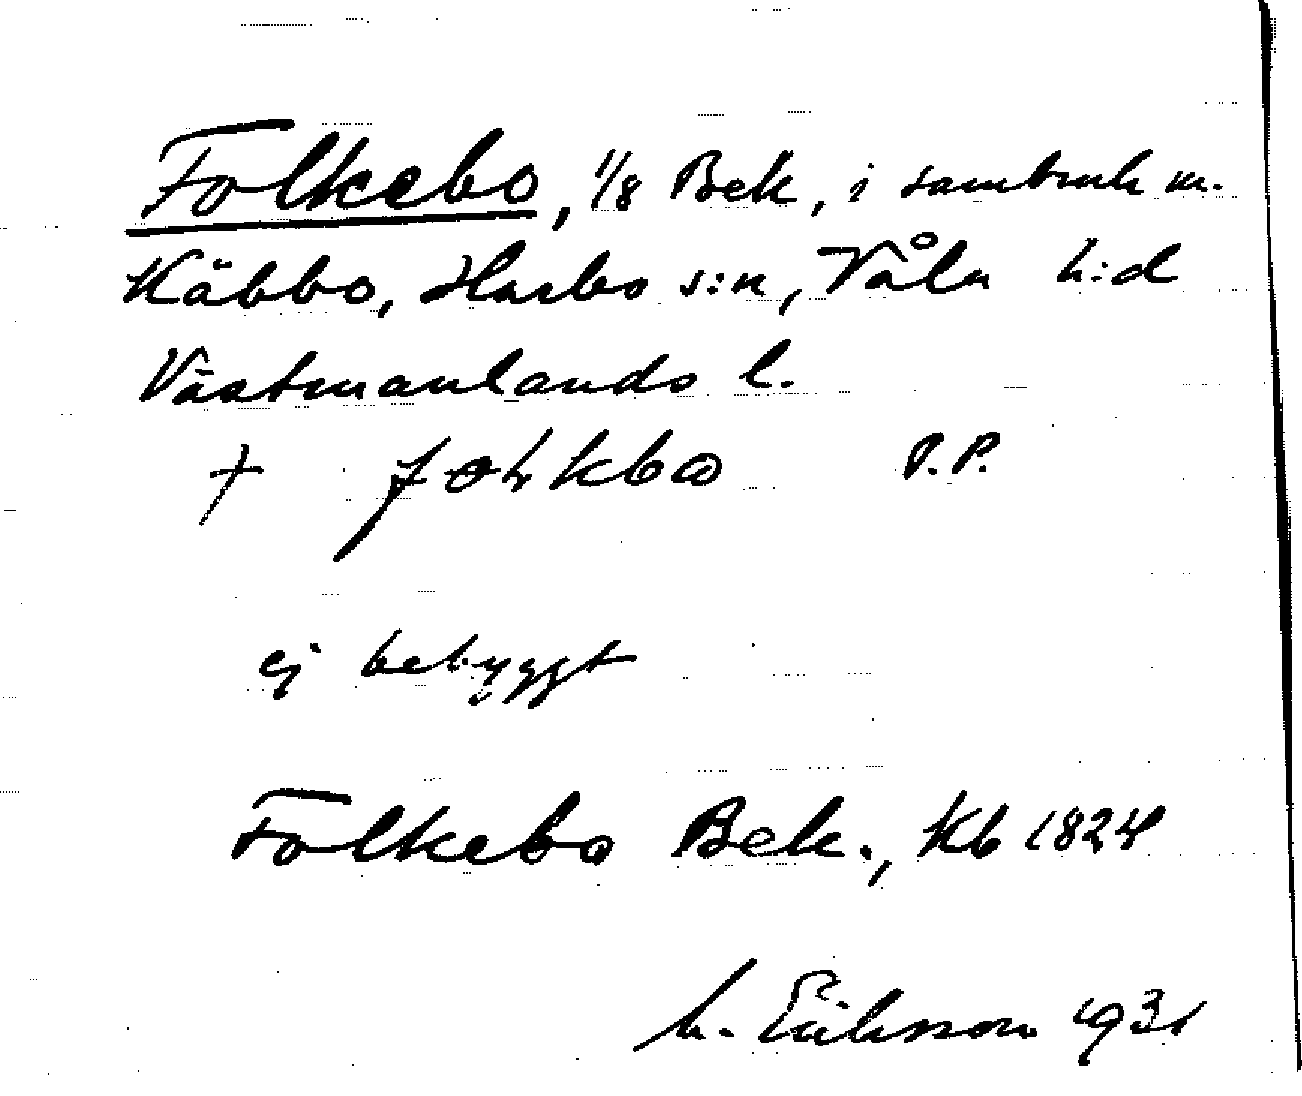 Folkebo, 1/8 Bek, i sambruk m.
Käbbo, Harbo s:n, Våla h:d
Västmanlands l.
† P.P.
ej bebyggt
Folkebo Bek., Kb 1824
M. Eriksson 1931